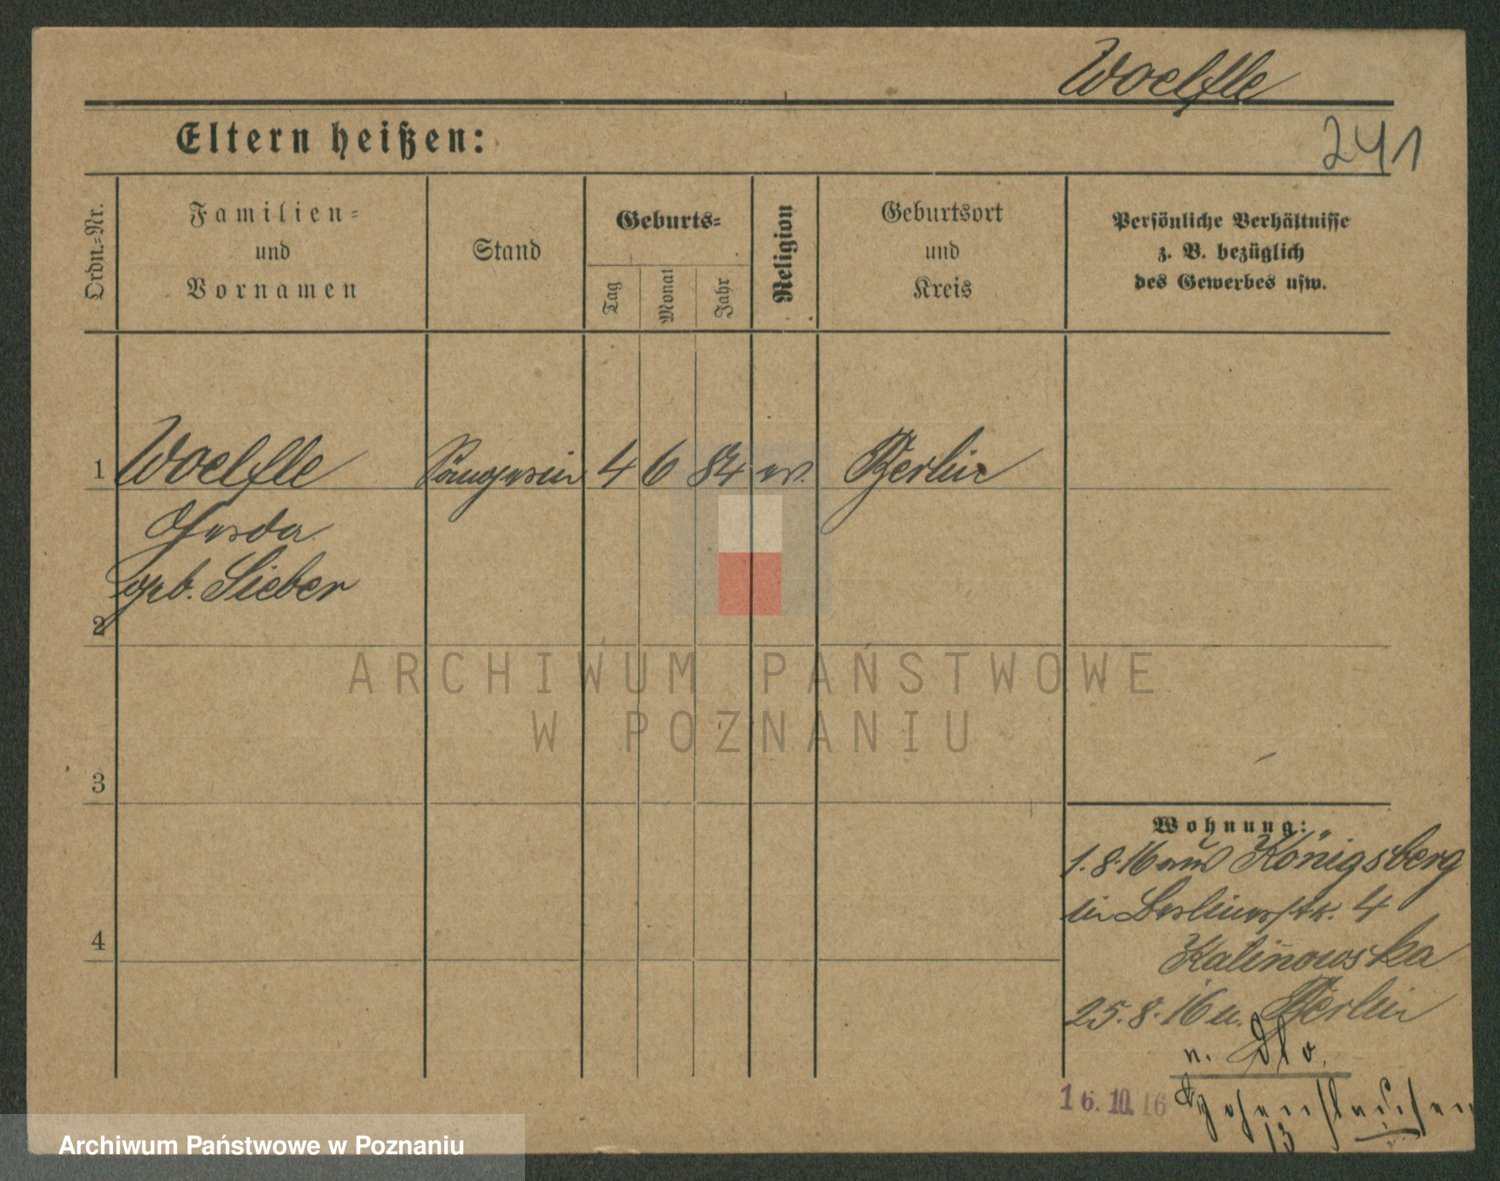 Woelfle
Eltern heißen:
241
Ordn.=Nr.
Familien=
und
Vornamen
Stand
Geburts=
Tag
Monat
Jahr
Religion
Geburtsort
und
Kreis
Persönliche Verhältnisse
z. B. bezüglich
des Gewerbes usw.
1 Woelfle Sängerin 4 6 84 ev. Berlin
Gerda
geb. Sieber
2
3
4
Wohnung:
1.8.16 aus Königsberg
in Berlinerstr. 4
Kalinowska
25.8.16 n. Berlin
n.
16.10.16
13
ARCHIWUM PAŃSTWOWE
W POZNANIU
Archiwum Państwowe w Poznaniu